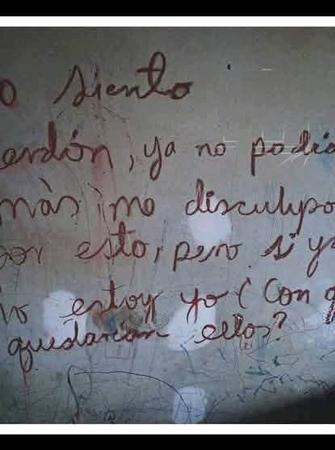 o siento
erdón, ya no podía
más, me disculpo
por esto, pero si ya
no estoy yo ¿Con q
quedarían ellos?